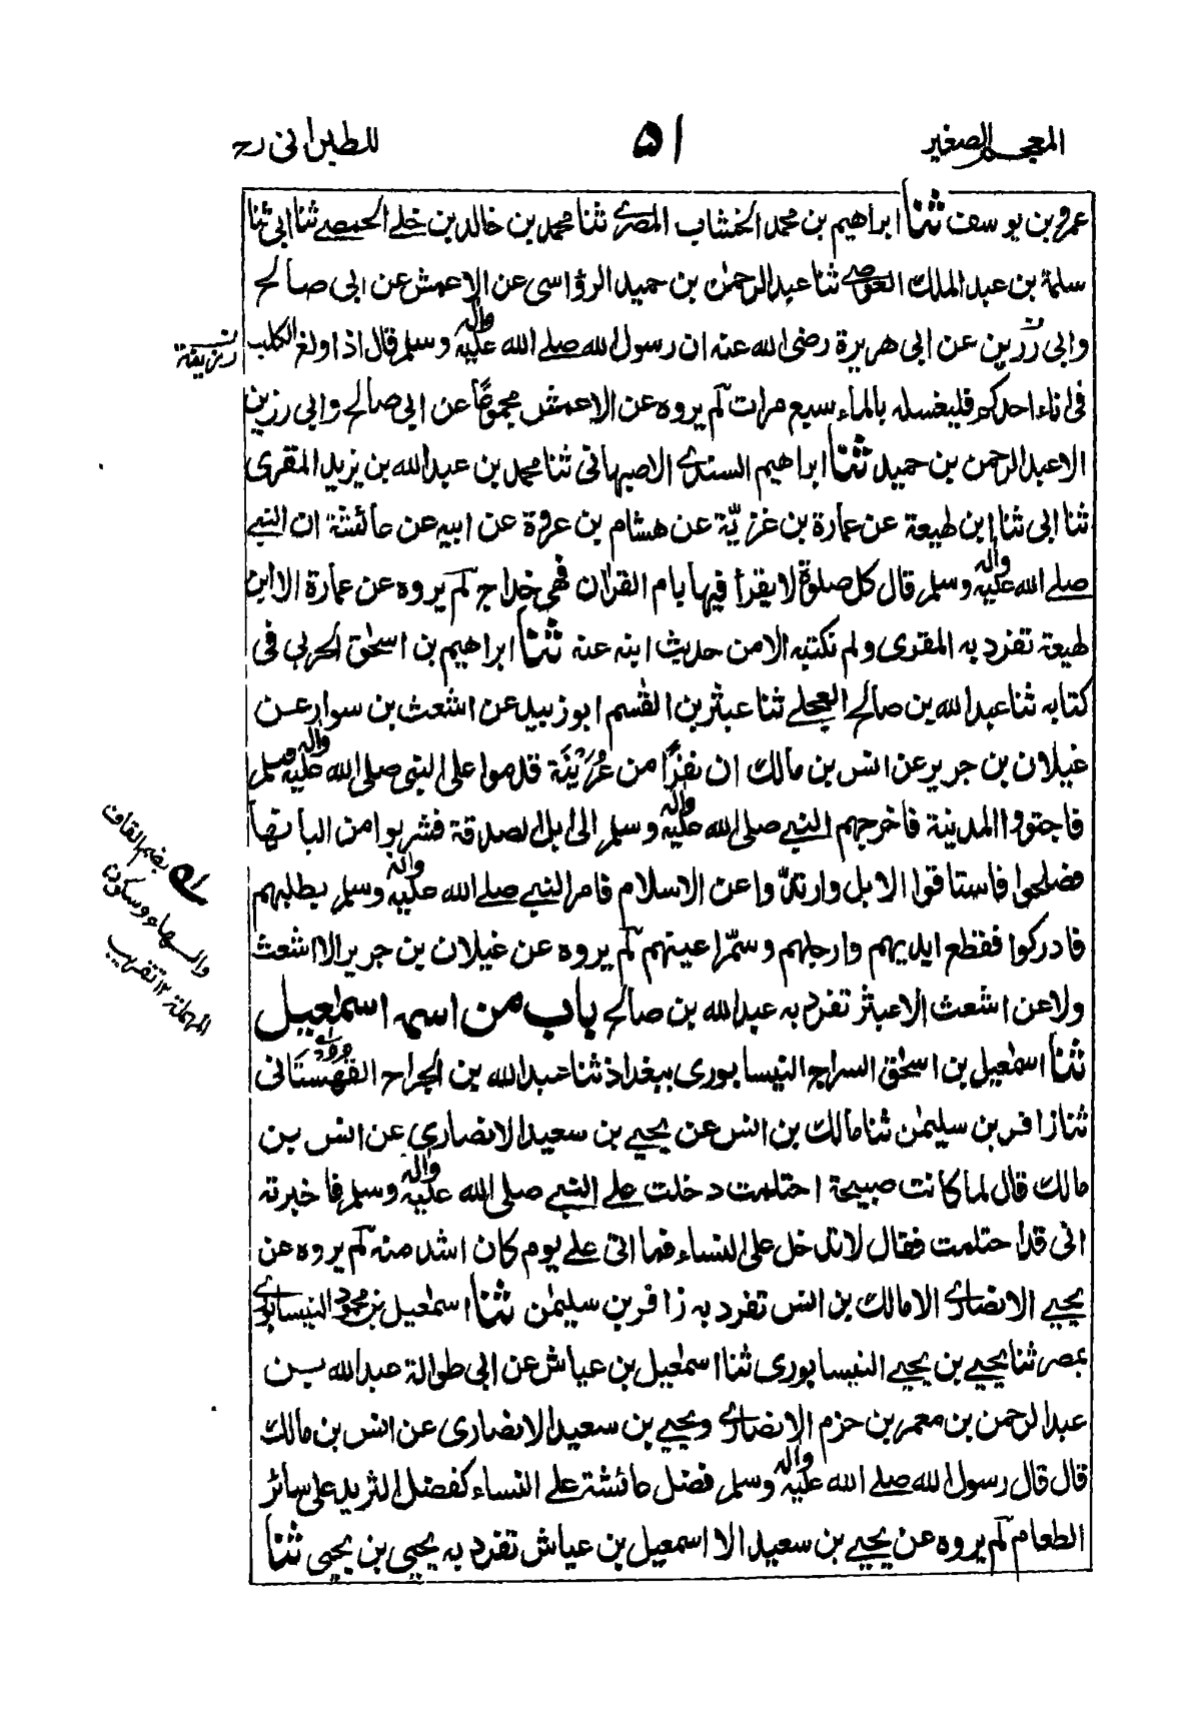 المعجم الصغير
٥١
للطبرانی رح
عمرو بن يوسف ثنا ابراهيم بن محمد الخشاب المصری ثنا محمد بن خالد بن خلی الحمصی ثنا ابی ثنا
سلمة بن عبد الملك العوصی ثنا عبد الرحمٰن بن حميد الرؤاسی عن الاعمش عن ابی صالح
وابی رزين عن ابی هريرة رضی الله عنه ان رسول الله صلی الله عليه واٰله وسلم قال اذا ولغ الكلب
فی اناء احدكم فليغسله بالماء سبع مرات لم يروه عن الاعمش مجموعًا عن ابی صالح وابی رزين
الا عبد الرحمن بن حميد ثنا ابراهيم السندی الاصبهانی ثنا محمد بن عبد الله بن يزيد المقری
ثنا ابی ثنا ابن لهيعة عن عمارة بن غزيّة عن هشام بن عروة عن ابيه عن عائشة ان النبی
صلی الله عليه واٰله وسلم قال كل صلوة لا يقرأ فيها بام القراٰن فهی خداج لم يروه عن عمارة الا ابن
لهيعة تفرد به المقری ولم نكتبه الا من حديث ابنه عنه ثنا ابراهيم بن اسحٰق الحربی فی
كتابه ثنا عبد الله بن صالح العجلی ثنا عبثر بن القٰسم ابو زبيد عن اشعث بن سوار عن
غيلان بن جرير عن انس بن مالك ان نفرًا من عُرَيْنَة قدموا علی النبی صلی الله عليه واٰله وسلم
فاجتووا المدينة فاخرجهم النبی صلی الله عليه واٰله وسلم الی ابل الصدقة فشربوا من البانها
فصلحوا فاستاقوا الابل وارتدّوا عن الاسلام فامر النبی صلی الله عليه واٰله وسلم بطلبهم
فادركوا فقطع ايديهم وارجلهم وسمّر اعينهم لم يروه عن غيلان بن جرير الا اشعث
ولا عن اشعث الا عبثر تفرد به عبد الله بن صالح باب من اسمه اسمٰعيل
ثنا اسمٰعيل بن اسحٰق السراج النيسابوری ببغداد ثنا عبد الله بن الجراح القُهُسْتَانی
ثنا زافر بن سليمٰن ثنا مالك بن انس عن يحيی بن سعيد الانصاری عن انس بن
مالك قال لما كانت صبيحة احتلمت دخلت علی النبی صلی الله عليه واٰله وسلم فاخبرته
انی قد احتلمت فقال لا تدخل علی النساء فما اتی علی يوم كان اشد منه لم يروه عن
يحيی الانصاری الا مالك بن انس تفرد به زافر بن سليمٰن ثنا اسمٰعيل بن محمود النيسابوری
بمصر ثنا يحيی بن يحيی النيسابوری ثنا اسمٰعيل بن عياش عن ابی طوالة عبد الله بن
عبد الرحمن بن معمر بن حزم الانصاری ويحيی بن سعيد الانصاری عن انس بن مالك
قال قال رسول الله صلی الله عليه واٰله وسلم فضل عائشة علی النساء كفضل الثريد علی سائر
الطعام لم يروه عن يحيی بن سعيد الا اسمعيل بن عياش تفرد به يحيی بن يحيی ثنا
بضم القاف
والهاء وسكون
المهملة ١٢ تقريب